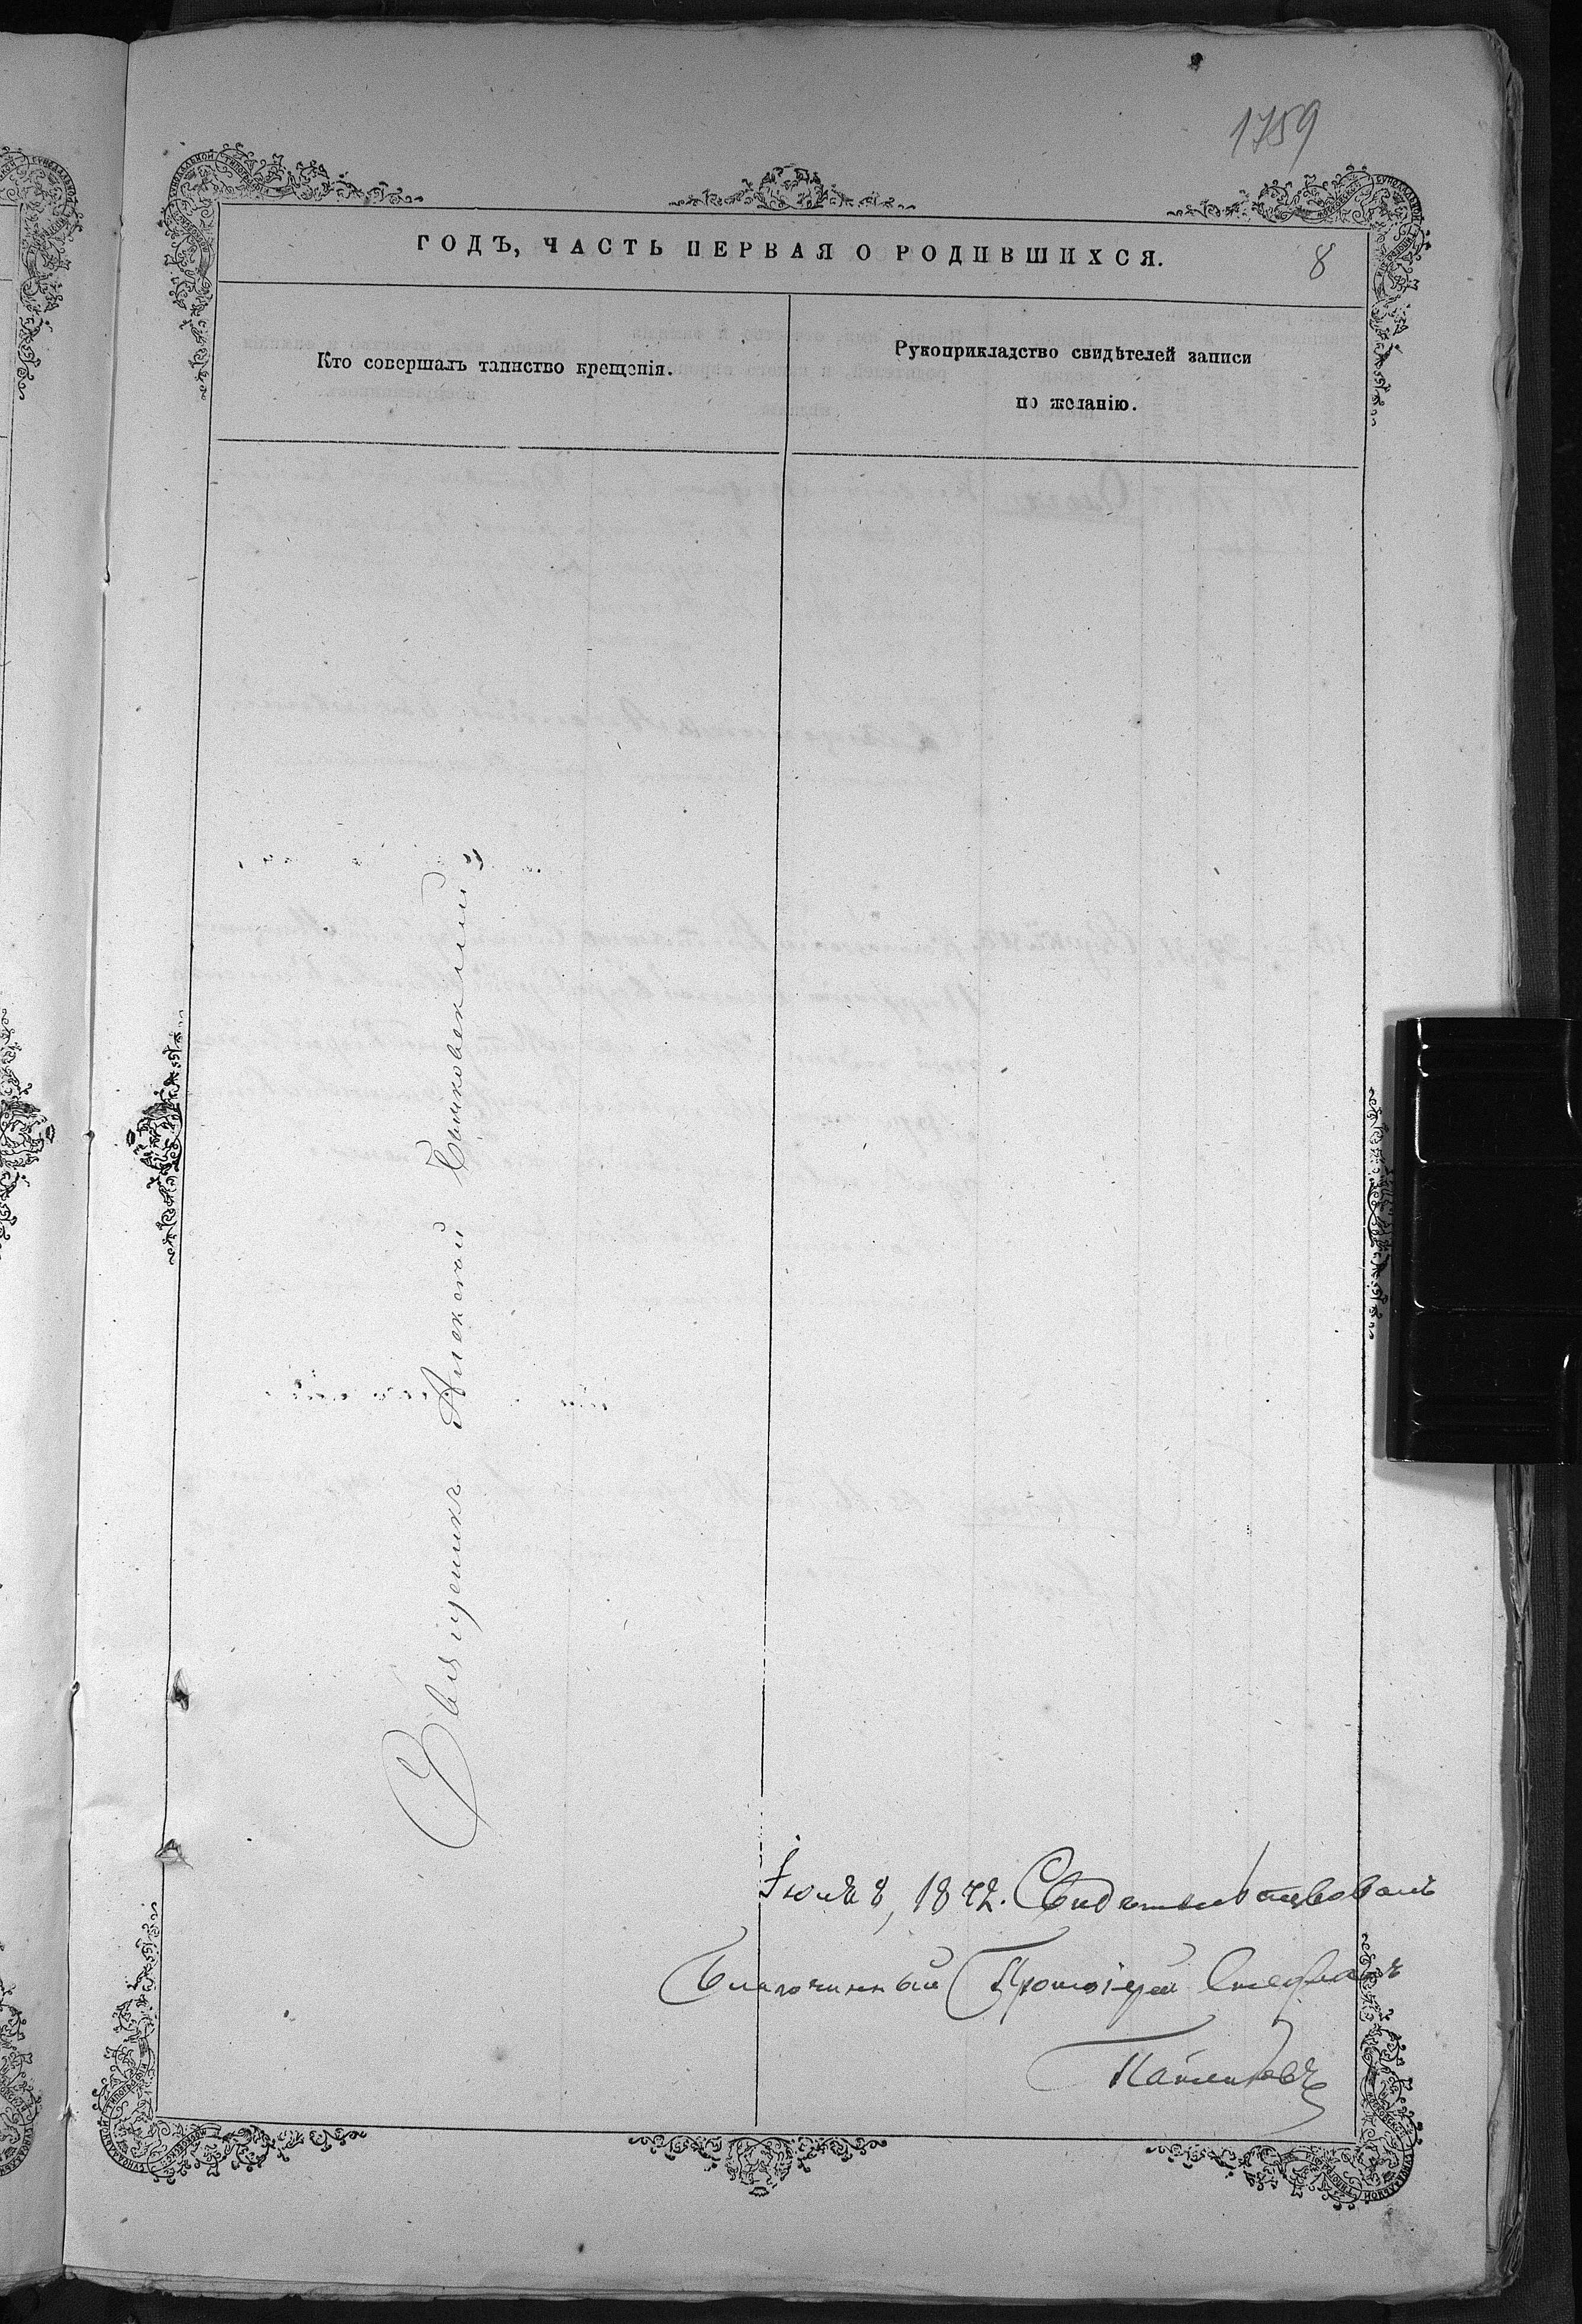 1759
ГОДЪ, ЧАСТЬ ПЕРВАЯ О РОДИВШИХСЯ.
8
Кто совершалъ таинство крещенія.
Рукоприкладство свидѣтелей записи
по желанію.
Священникъ Алексѣй
Іюля 8, 1872. Свидѣтельствовалъ
Благочинный Протоіерей Стефанъ